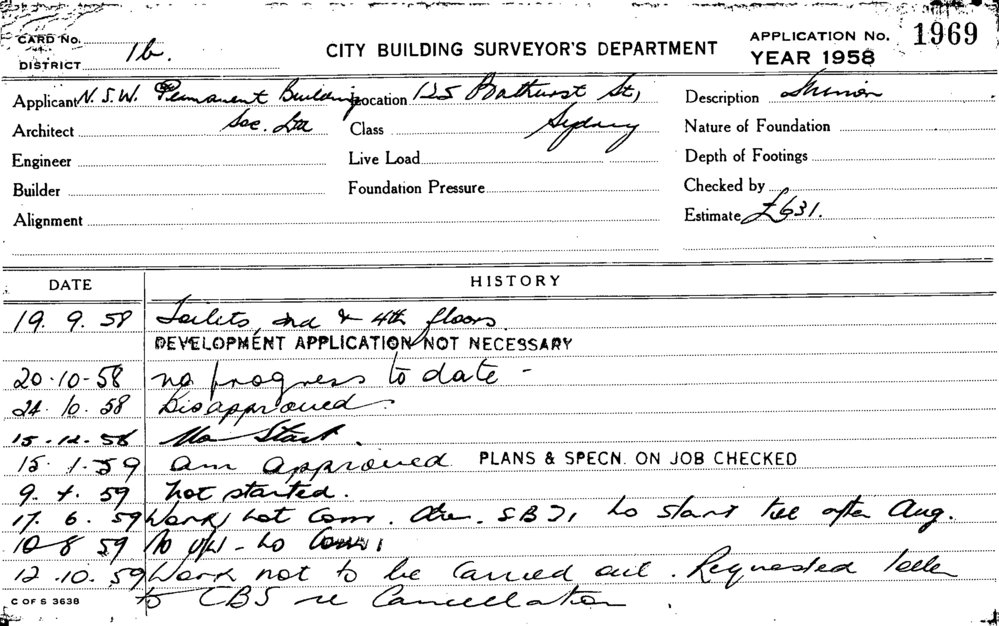 CARD No.
DISTRICT 1b.
CITY BUILDING SURVEYOR'S DEPARTMENT
APPLICATION No. 1969
YEAR 1958
Applicant N.S.W. Permanent Building Location 125 Bathurst St, Description
Soc. Ltd Sydney
Architect Class Nature of Foundation
Engineer Live Load Depth of Footings
Builder Foundation Pressure Checked by
Alignment Estimate £631.
DATE HISTORY
19. 9. 58 Toilets, 2nd & 4th floors.
DEVELOPMENT APPLICATION NOT NECESSARY
20-10-58 no progress to date -
24. 10. 58 Disapproved.
15. 12. 58 No Start.
15. 1. 59 am approved PLANS & SPECN. ON JOB CHECKED
9. 4. 59 not started.
17. 6. 59 Work not Com. start till after Aug.
10-8 59
12. 10. 59 Work not to be carried out. Requested
to CBS re Cancellation.
C OF S 3638